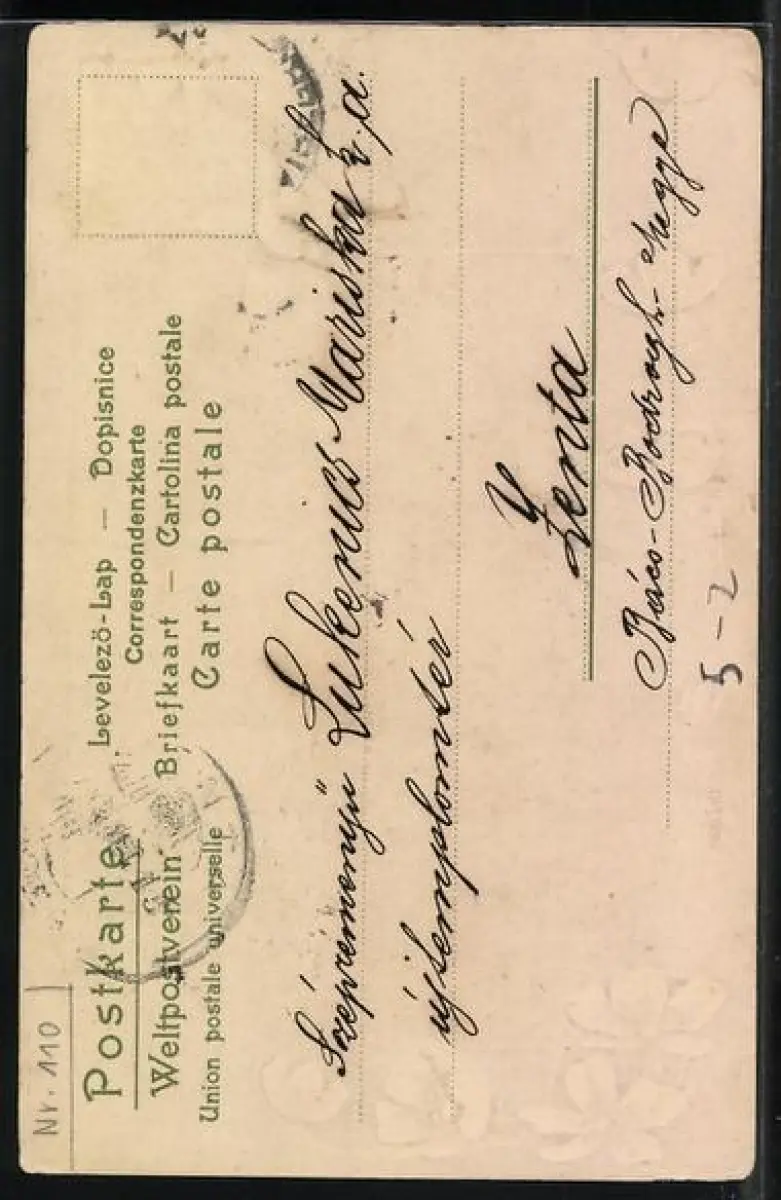 Nr. 110
Postkarte
Levelező-Lap — Dopisnice
Correspondenzkarte
Weltpostverein
Briefkaart — Cartolina postale
Union postale universelle
Carte postale
Szépreményű Lukenics Mariska k. a.
újtemplomtér
Zenta
Bács-Bodrogh-megye
5-2